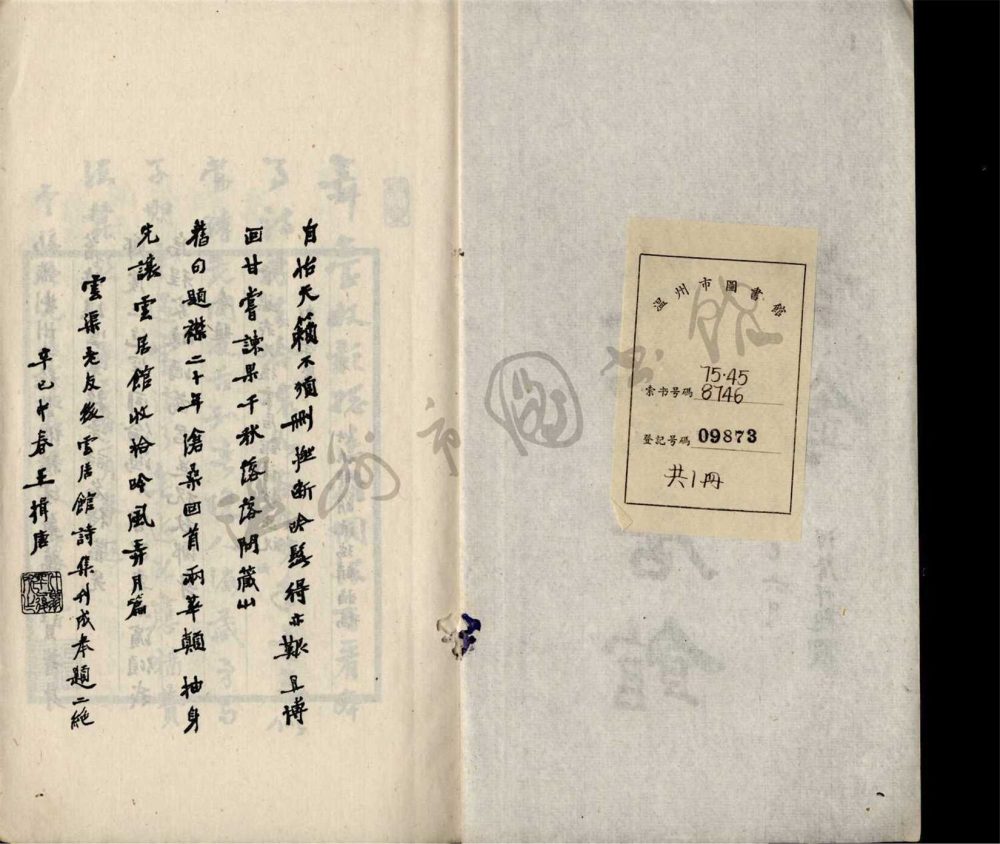 溫州市圖書館
索书号碼 75·45
8746
登記号碼 09873
共1冊
自怡天籟不須刪撚斷吟髭得亦艱且博
回甘嘗諫果千秋落落閟藏山
舊句題襟二十年滄桑回首兩華顛抽身
先讓雲居館收拾吟風弄月篇
雲渠老友後雲居館詩集刊成奉題二絕
辛巳中春王揖唐